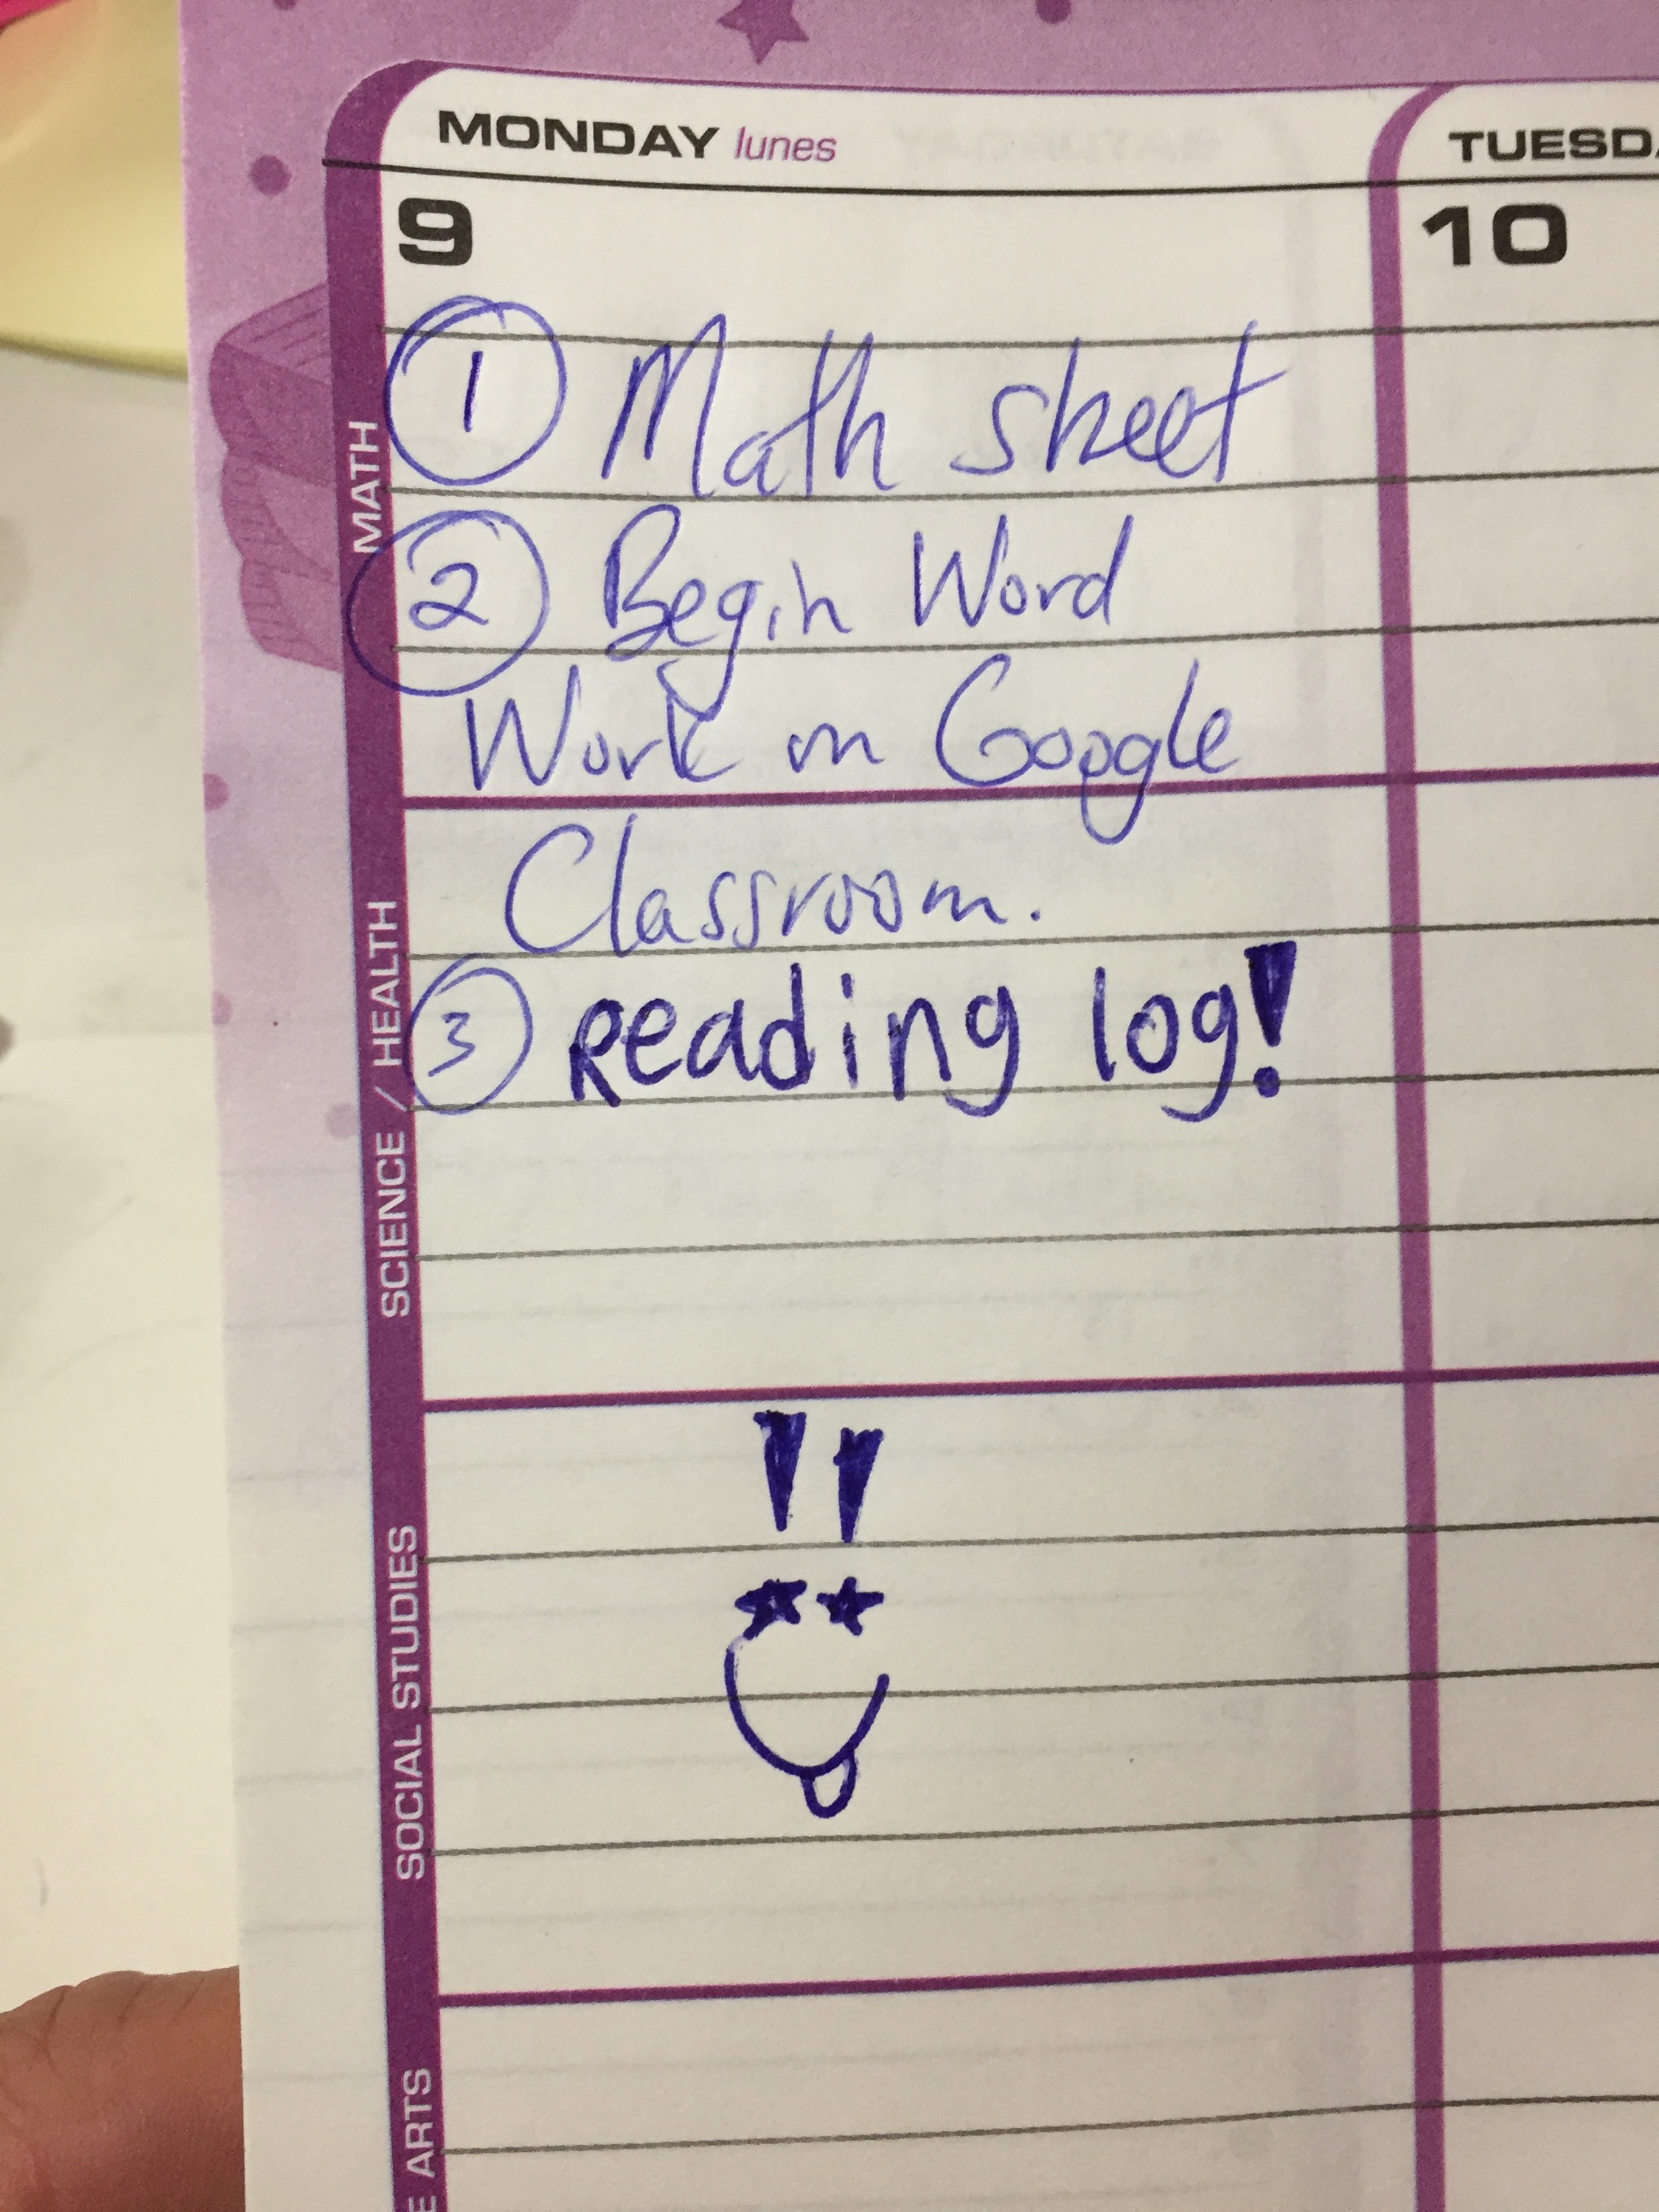 MONDAY lunes
TUESDA
9
10
MATH
① Math sheet
② Begin Word
Work on Google
Classroom.
③ Reading log!
SCIENCE / HEALTH
SOCIAL STUDIES
E ARTS